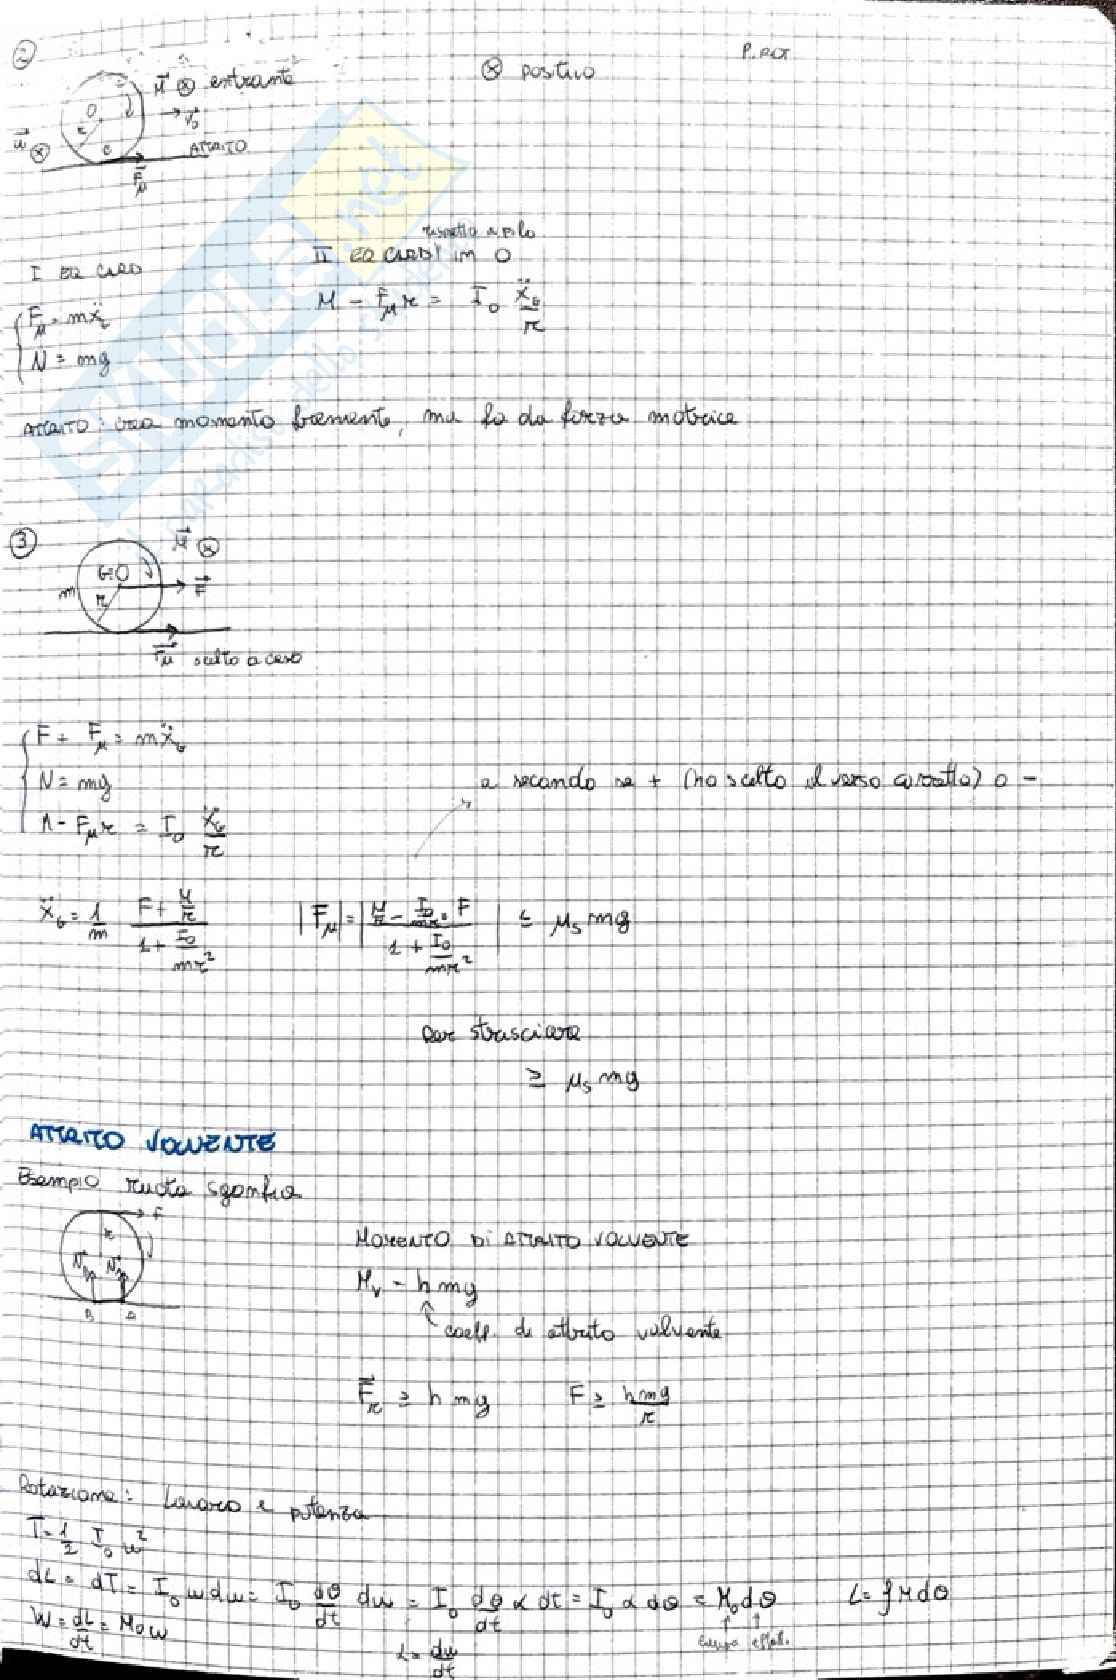 P.ROT
②
M ⊗ entrante
⊗ positivo
O
r
V₀
ω ⊗
C
ATTRITO
Fμ
rispetto a polo
I EQ CARD
II EQ CARD in O
Fμ = mẍG
M - Fμ r = I₀ ẍG/r
N = mg
ATTRITO: crea momento frenante, ma fa da forza motrice
③
M ⊗
G≡O
m
r
F
Fμ scelto a caso
F + Fμ = mẍG
N = mg
a secondo se + (ho scelto il verso corretto) o -
M - Fμ r = I₀ ẍG/r
ẍG = 1/m (F + M/r)/(1 + I₀/mr²)
|Fμ| = |(M/r - I₀/mr² F)/(1 + I₀/mr²)| ≤ μs mg
per strisciare
≥ μs mg
ATTRITO VOLVENTE
Esempio ruota sgonfia
F
r
N N
B A
MOMENTO DI ATTRITO VOLVENTE
Mv = h mg
coeff. di attrito volvente
Fr ≥ h mg F ≥ hmg/r
Rotazione: Lavoro e potenza
T = 1/2 I₀ ω²
dL = dT = I₀ ω dω = I₀ dθ/dt dω = I₀ dθ/dt α dt = I₀ α dθ = M₀ dθ L = ∫M dθ
causa effet.
W = dL/dt = M₀ ω
α = dω/dt
SKUOLA.net